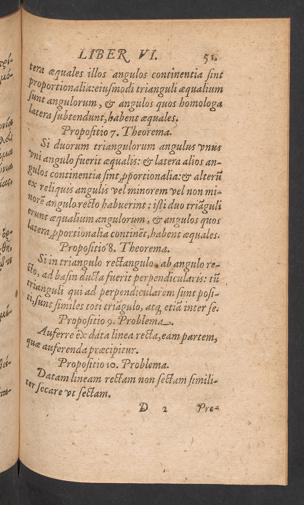 LIBER VI. 51.
tera æquales illos angulos continentia sint
proportionalia: eiusmodi trianguli æqualium
sunt angulorum, & angulos quos homologa
latera subtendunt, habent æquales.
Propositio 7. Theorema.
Si duorum triangulorum angulus vnus
vni angulo fuerit æqualis: & latera alios an-
gulos continentia sint, pportionalia: & alterū
ex reliquis angulis vel minorem vel non mi-
norē angulo recto habuerint; isti duo triāguli
erunt æqualium angulorum, & angulos quos
latera, pportionalia continēt, habent æquales.
Propositio 8. Theorema.
Si in triangulo rectangulo, ab angulo re-
cto, ad basin ducta fuerit perpendicularis: tū
trianguli qui ad perpendicularem sunt posi-
ti, sunt similes toti triāgulo, atq, etiā inter se.
Propositio 9. Problema.
Auferre ex data linea recta, eam partem,
quæ auferenda præcipitur.
Propositio 10. Problema.
Datam lineam rectam non sectam simili-
ter secare vt sectam.
D 2 Pro-